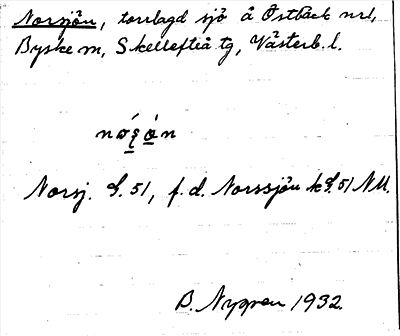 Norsjön, torrlagd sjö å Östbäck nrl,
Byske m, Skellefteå tg, Västerb. l.
Norsj. G. 51, f.d. Norssjön k G. 51 NM.
B. Nygren 1932.